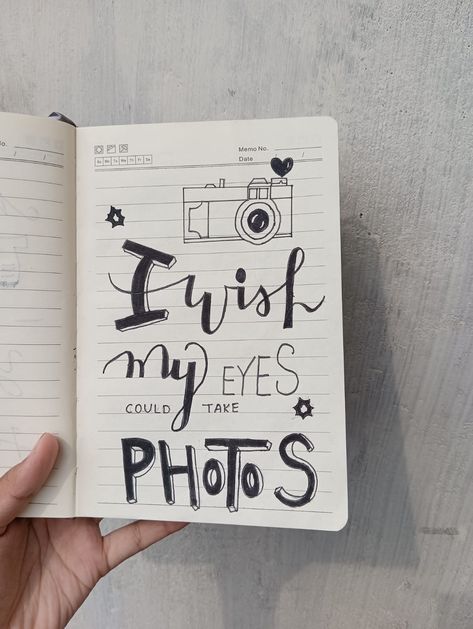 Memo No.
Su Mo Tu We Th Fr Sa
Date / /
I wish
my EYES
COULD TAKE
PHOTOS